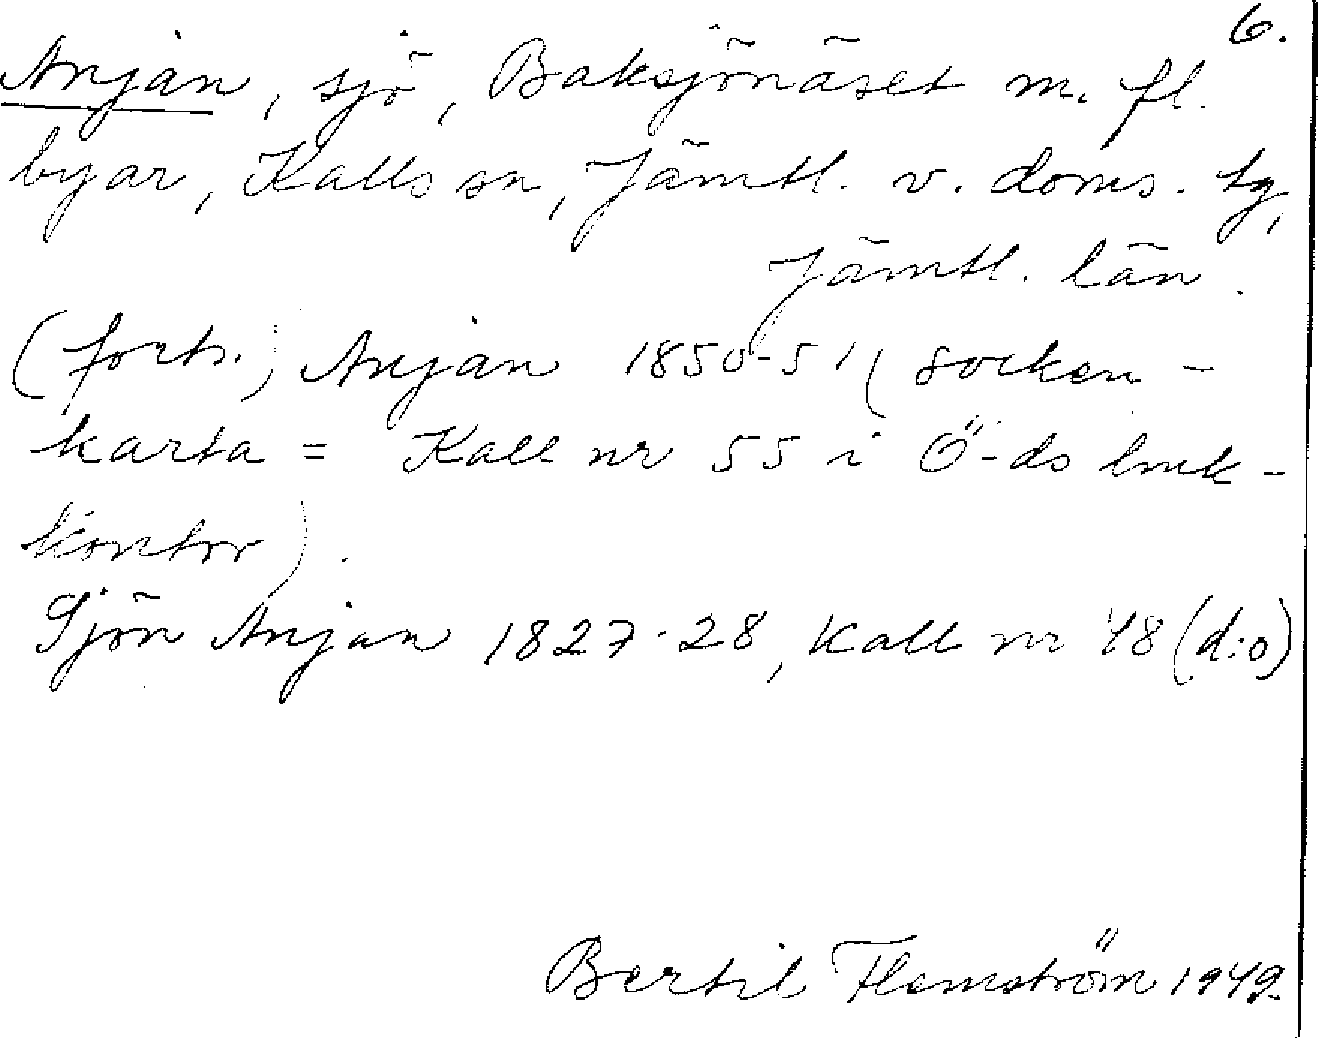 6.
Anjan, sjö, Baksjönäset m. fl.
byar, Kalls sn, Jämtl. v. doms. tg,
Jämtl. län.
(forts.) Anjan 1850-51 (socken-
karta = Kall nr 55 i Ö-ds lmk-
kontor).
Sjön Anjan 1827-28, Kall nr 48 (d:o)
Bertil Flemström 1949.